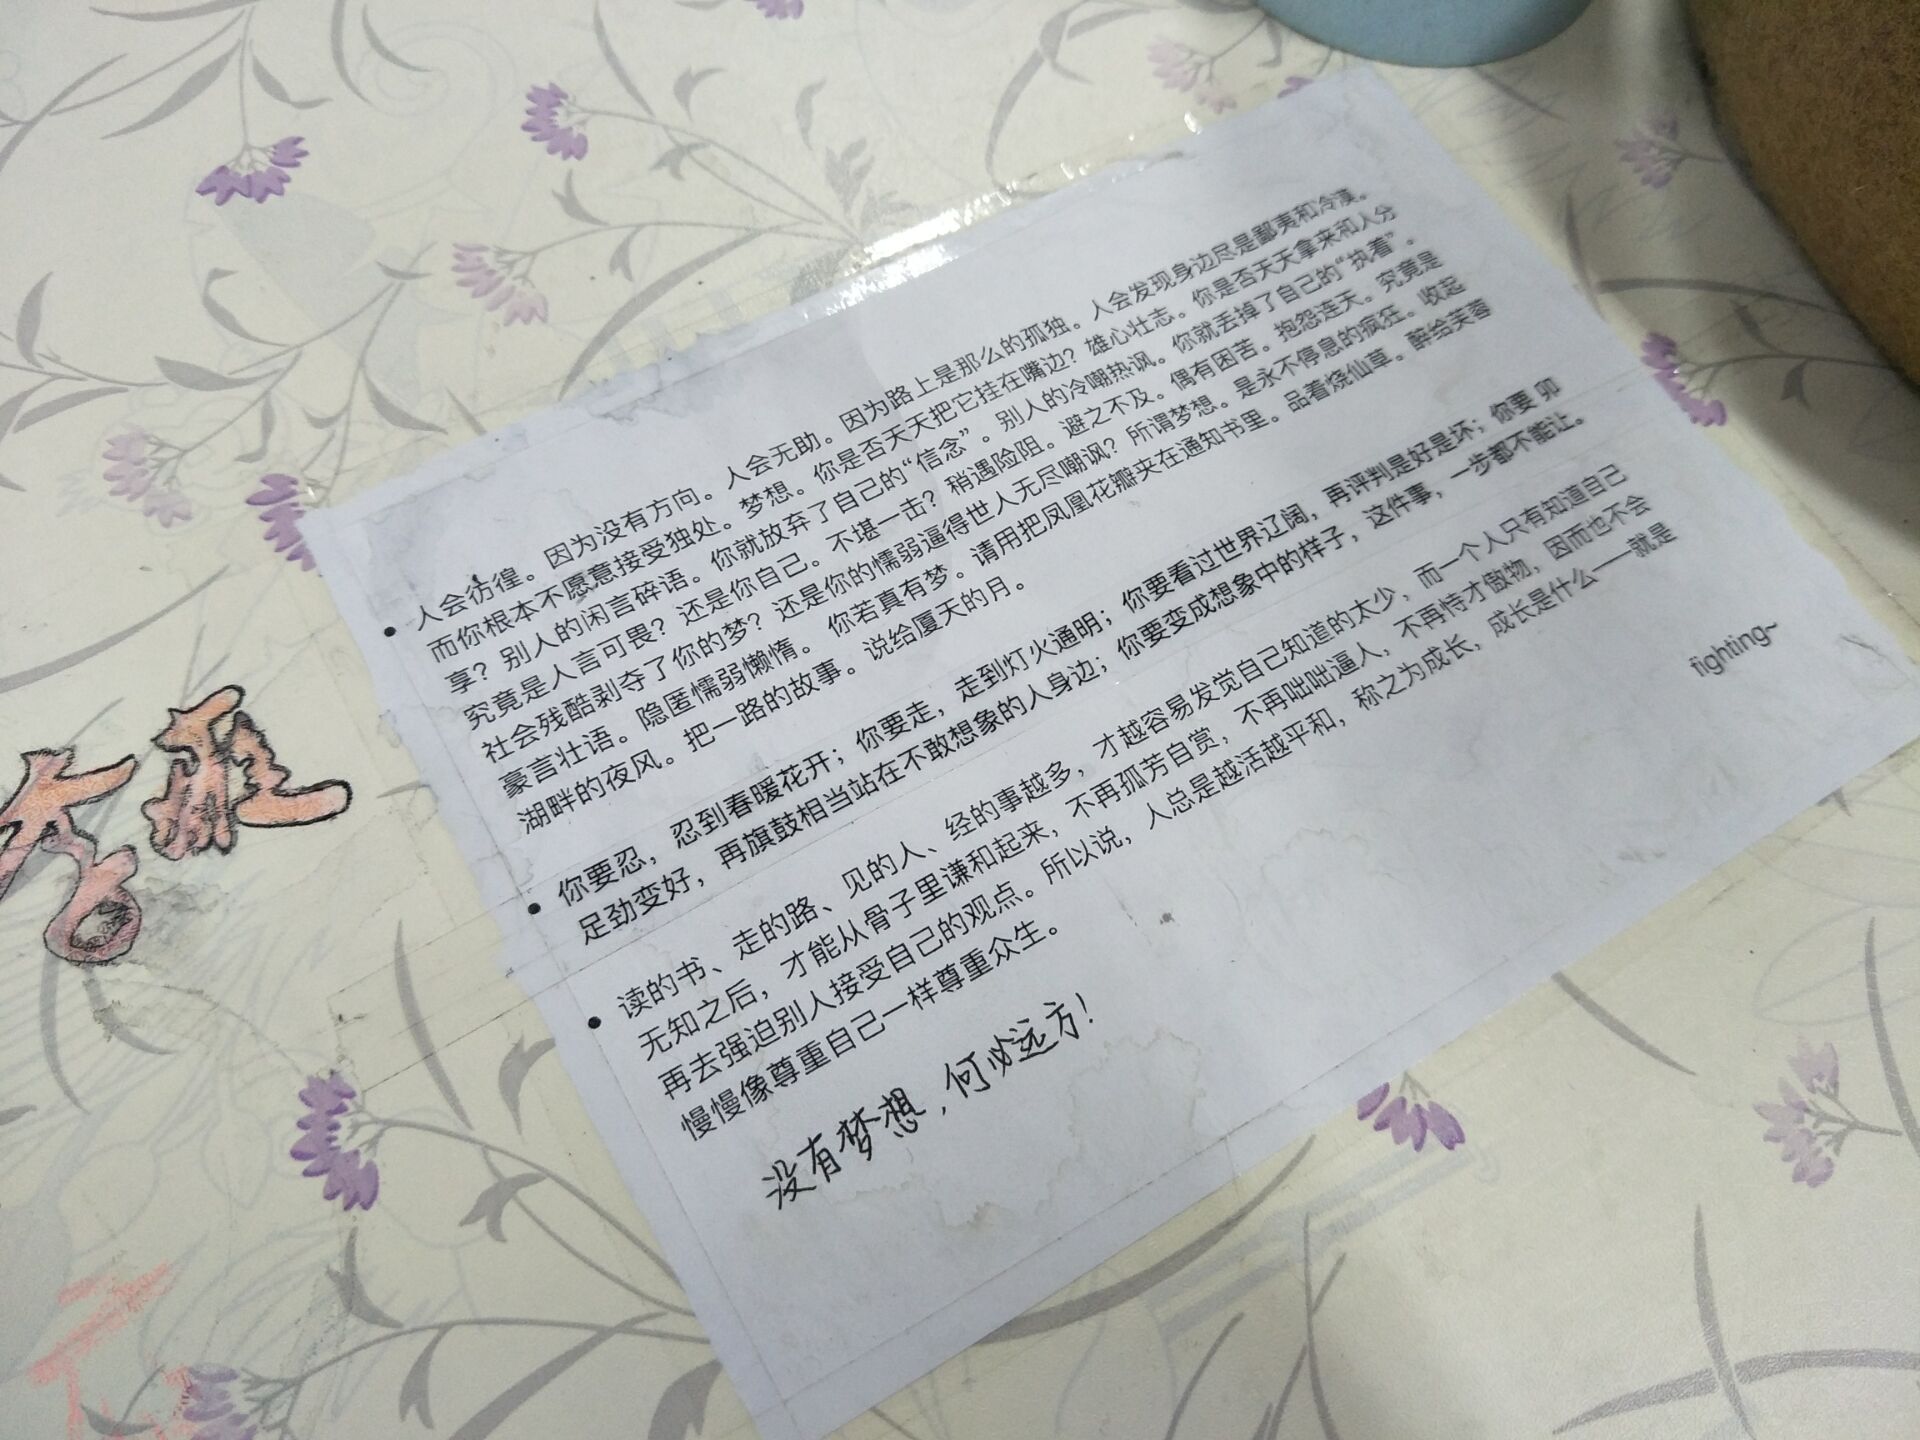 人会彷徨。因为没有方向。人会无助。因为路上是那么的孤独。人会发现身边尽是鄙夷和冷漠。
而你根本不愿意接受独处。梦想。你是否天天把它挂在嘴边?雄心壮志。你是否天天拿来和人分
享?别人的闲言碎语。你就放弃了自己的“信念”。别人的冷嘲热讽。你就丢掉了自己的“执着”。
究竟是人言可畏?还是你自己。不堪一击?稍遇险阻。避之不及。偶有困苦。抱怨连天。究竟是
社会残酷剥夺了你的梦?还是你的懦弱逼得世人无尽嘲讽?所谓梦想。是永不停息的疯狂。收起
豪言壮语。隐匿懦弱懒惰。 你若真有梦。请用把凤凰花瓣夹在通知书里。品着烧仙草。醉给芙蓉
湖畔的夜风。把一路的故事。说给厦天的月。
你要忍,忍到春暖花开;你要走,走到灯火通明;你要看过世界辽阔,再评判是好是坏;你要 卯
足劲变好,再旗鼓相当站在不敢想象的人身边;你要变成想象中的样子,这件事,一步都不能让。
读的书、走的路、见的人、经的事越多,才越容易发觉自己知道的太少,而一个人只有知道自己
无知之后,才能从骨子里谦和起来,不再孤芳自赏,不再咄咄逼人,不再恃才傲物,因而也不会
再去强迫别人接受自己的观点。所以说,人总是越活越平和,称之为成长,成长是什么——就是
慢慢像尊重自己一样尊重众生。
fighting~
没有梦想,何必远方!